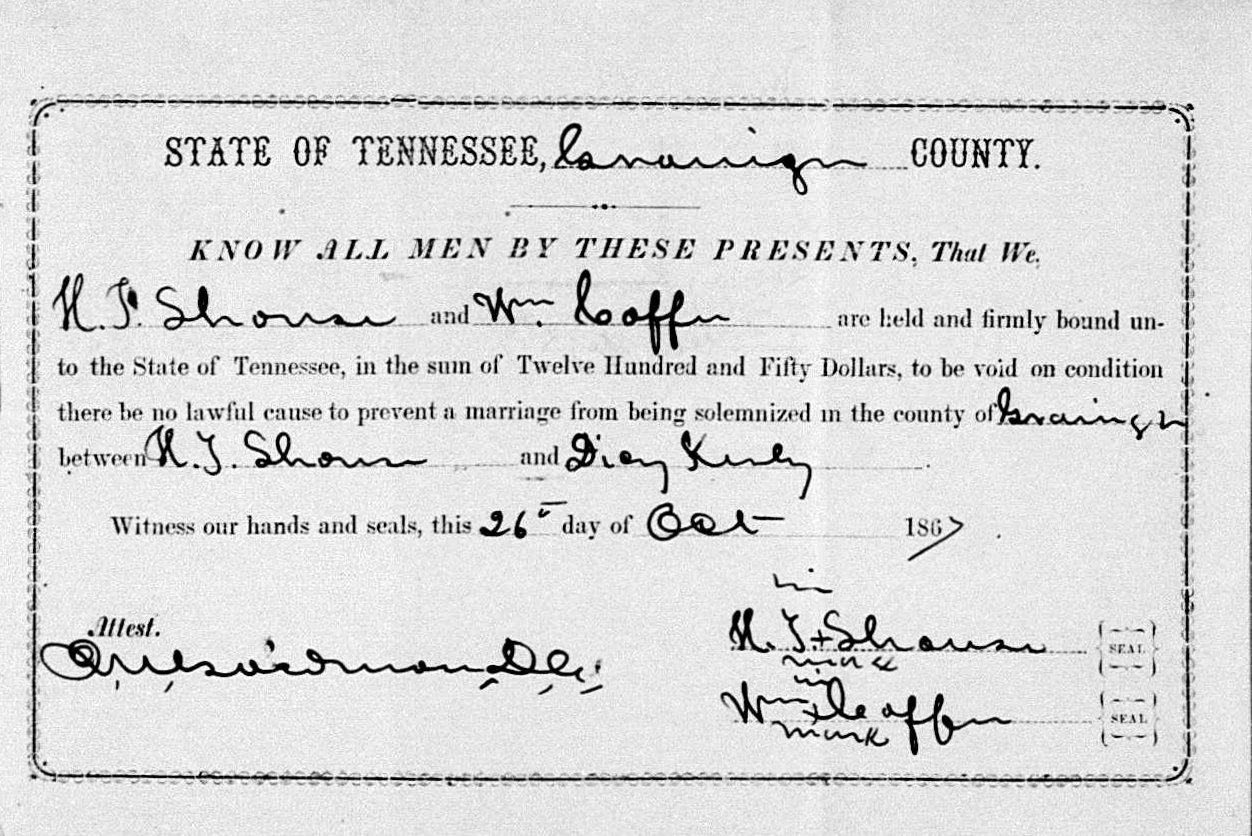 STATE OF TENNESSEE, Grainger COUNTY.
KNOW ALL MEN BY THESE PRESENTS, That We,
H. T. Shouse and Wm. Coffer are held and firmly bound un-
to the State of Tennessee, in the sum of Twelve Hundred and Fifty Dollars, to be void on condition
there be no lawful cause to prevent a marriage from being solemnized in the county of Grainger
between H. T. Shouse and Dicy
Witness our hands and seals, this 26" day of Oct 1867.
his
Attest. H. T. + Shouse SEAL
mark
his
Wm + Coffer SEAL
mark